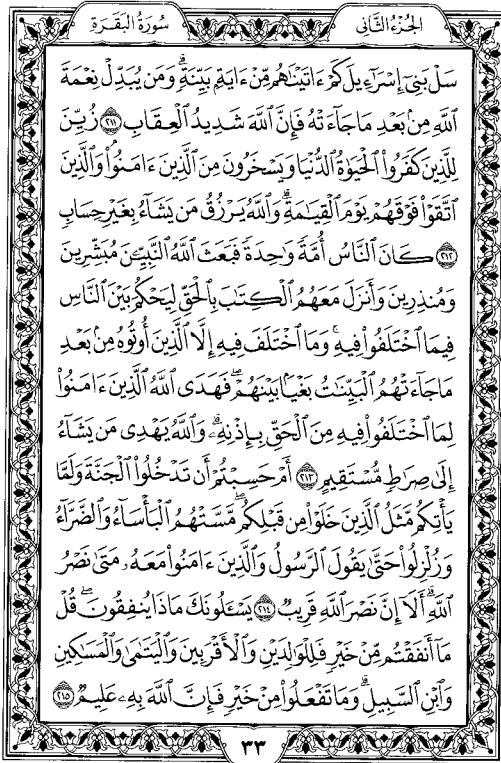 الجزء الثاني
سورة البقرة
سَلْ بَنِىٓ إِسْرَٰٓءِيلَ كَمْ ءَاتَيْنَٰهُم مِّنْ ءَايَةِۭ بَيِّنَةٍۗ وَمَن يُبَدِّلْ نِعْمَةَ
ٱللَّهِ مِنۢ بَعْدِ مَا جَآءَتْهُ فَإِنَّ ٱللَّهَ شَدِيدُ ٱلْعِقَابِ ٢١١ زُيِّنَ
لِلَّذِينَ كَفَرُوا۟ ٱلْحَيَوٰةُ ٱلدُّنْيَا وَيَسْخَرُونَ مِنَ ٱلَّذِينَ ءَامَنُوا۟ۘ وَٱلَّذِينَ
ٱتَّقَوْا۟ فَوْقَهُمْ يَوْمَ ٱلْقِيَٰمَةِۗ وَٱللَّهُ يَرْزُقُ مَن يَشَآءُ بِغَيْرِ حِسَابٍ
٢١٢ كَانَ ٱلنَّاسُ أُمَّةً وَٰحِدَةً فَبَعَثَ ٱللَّهُ ٱلنَّبِيِّۦنَ مُبَشِّرِينَ
وَمُنذِرِينَ وَأَنزَلَ مَعَهُمُ ٱلْكِتَٰبَ بِٱلْحَقِّ لِيَحْكُمَ بَيْنَ ٱلنَّاسِ
فِيمَا ٱخْتَلَفُوا۟ فِيهِۚ وَمَا ٱخْتَلَفَ فِيهِ إِلَّا ٱلَّذِينَ أُوتُوهُ مِنۢ بَعْدِ
مَا جَآءَتْهُمُ ٱلْبَيِّنَٰتُ بَغْيَۢا بَيْنَهُمْۖ فَهَدَى ٱللَّهُ ٱلَّذِينَ ءَامَنُوا۟
لِمَا ٱخْتَلَفُوا۟ فِيهِ مِنَ ٱلْحَقِّ بِإِذْنِهِۦۗ وَٱللَّهُ يَهْدِى مَن يَشَآءُ
إِلَىٰ صِرَٰطٍ مُّسْتَقِيمٍ ٢١٣ أَمْ حَسِبْتُمْ أَن تَدْخُلُوا۟ ٱلْجَنَّةَ وَلَمَّا
يَأْتِكُم مَّثَلُ ٱلَّذِينَ خَلَوْا۟ مِن قَبْلِكُمۖ مَّسَّتْهُمُ ٱلْبَأْسَآءُ وَٱلضَّرَّآءُ
وَزُلْزِلُوا۟ حَتَّىٰ يَقُولَ ٱلرَّسُولُ وَٱلَّذِينَ ءَامَنُوا۟ مَعَهُۥ مَتَىٰ نَصْرُ
ٱللَّهِۗ أَلَآ إِنَّ نَصْرَ ٱللَّهِ قَرِيبٌ ٢١٤ يَسْـَٔلُونَكَ مَاذَا يُنفِقُونَۖ قُلْ
مَآ أَنفَقْتُم مِّنْ خَيْرٍ فَلِلْوَٰلِدَيْنِ وَٱلْأَقْرَبِينَ وَٱلْيَتَٰمَىٰ وَٱلْمَسَٰكِينِ
وَٱبْنِ ٱلسَّبِيلِۗ وَمَا تَفْعَلُوا۟ مِنْ خَيْرٍ فَإِنَّ ٱللَّهَ بِهِۦ عَلِيمٌ ٢١٥
٣٣